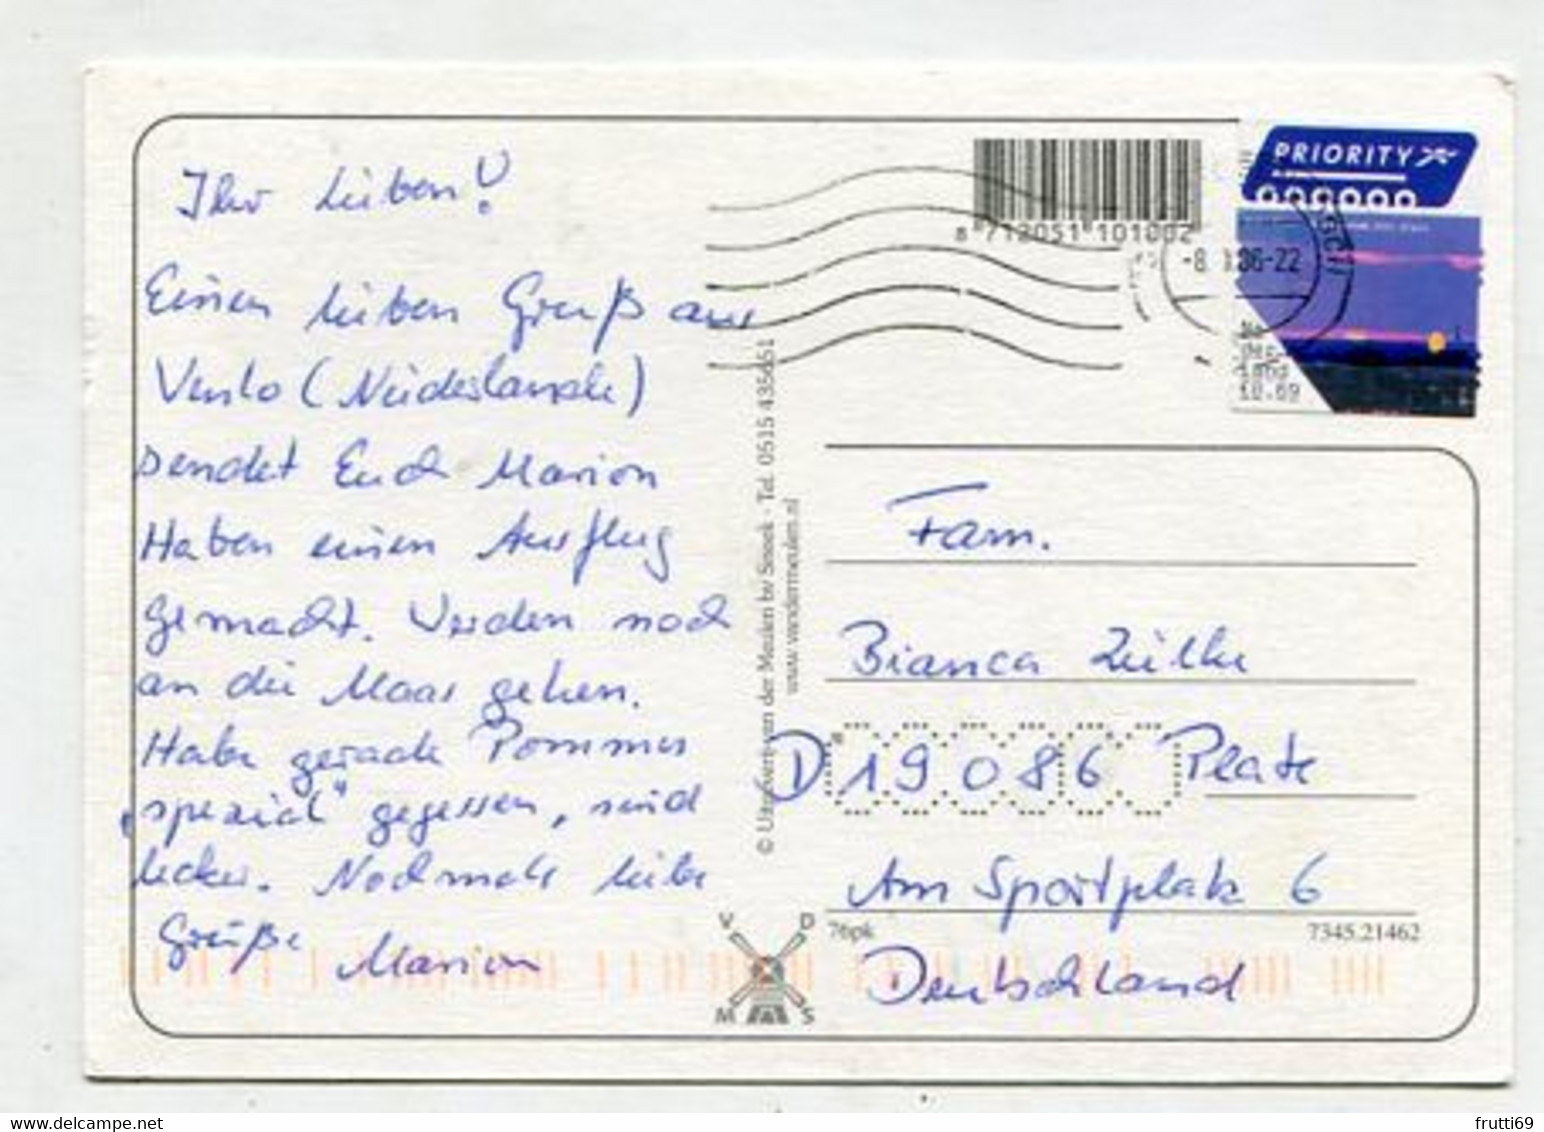 Ihr Lieben!
Einen lieben Gruß aus
Venlo (Niederlande)
sendet Euch Marion
Haben einen Ausflug
gemacht. Werden noch
an die Maas gehen.
Habe gerade Pommes
„spezial" gegessen, sind
lecker. Nochmals liebe
Grüße Marion
© Uitgeverij van der Meulen bv Sneek - Tel. 0515 435651
www.vandermeulen.nl
V D
M S
8 712051 101002
PRIORITY
-8 86-22
land
Fam.
Bianca Zülke
D 19086 Plate
Am Sportplatz 6
76pk 7345.21462
Deutschland
frutti69